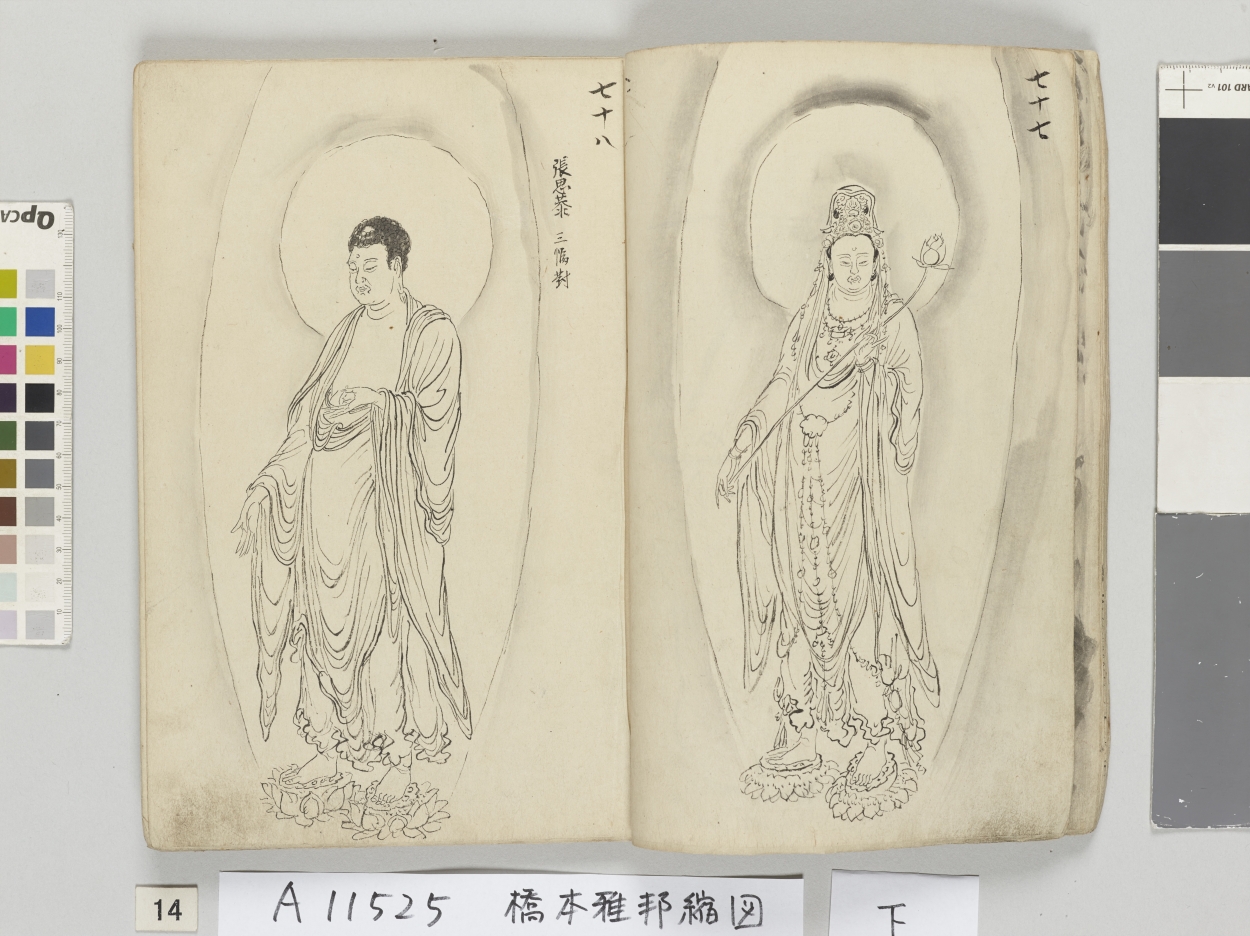 七十七
七十八
張思恭 三幅對
14
A 11525 橋本雅邦縮図
下
QPCA
ARD 101 v2